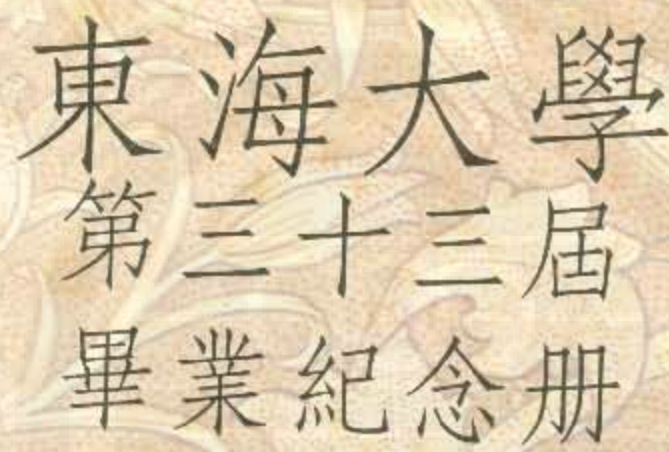 東海大學
第三十三屆
畢業紀念册